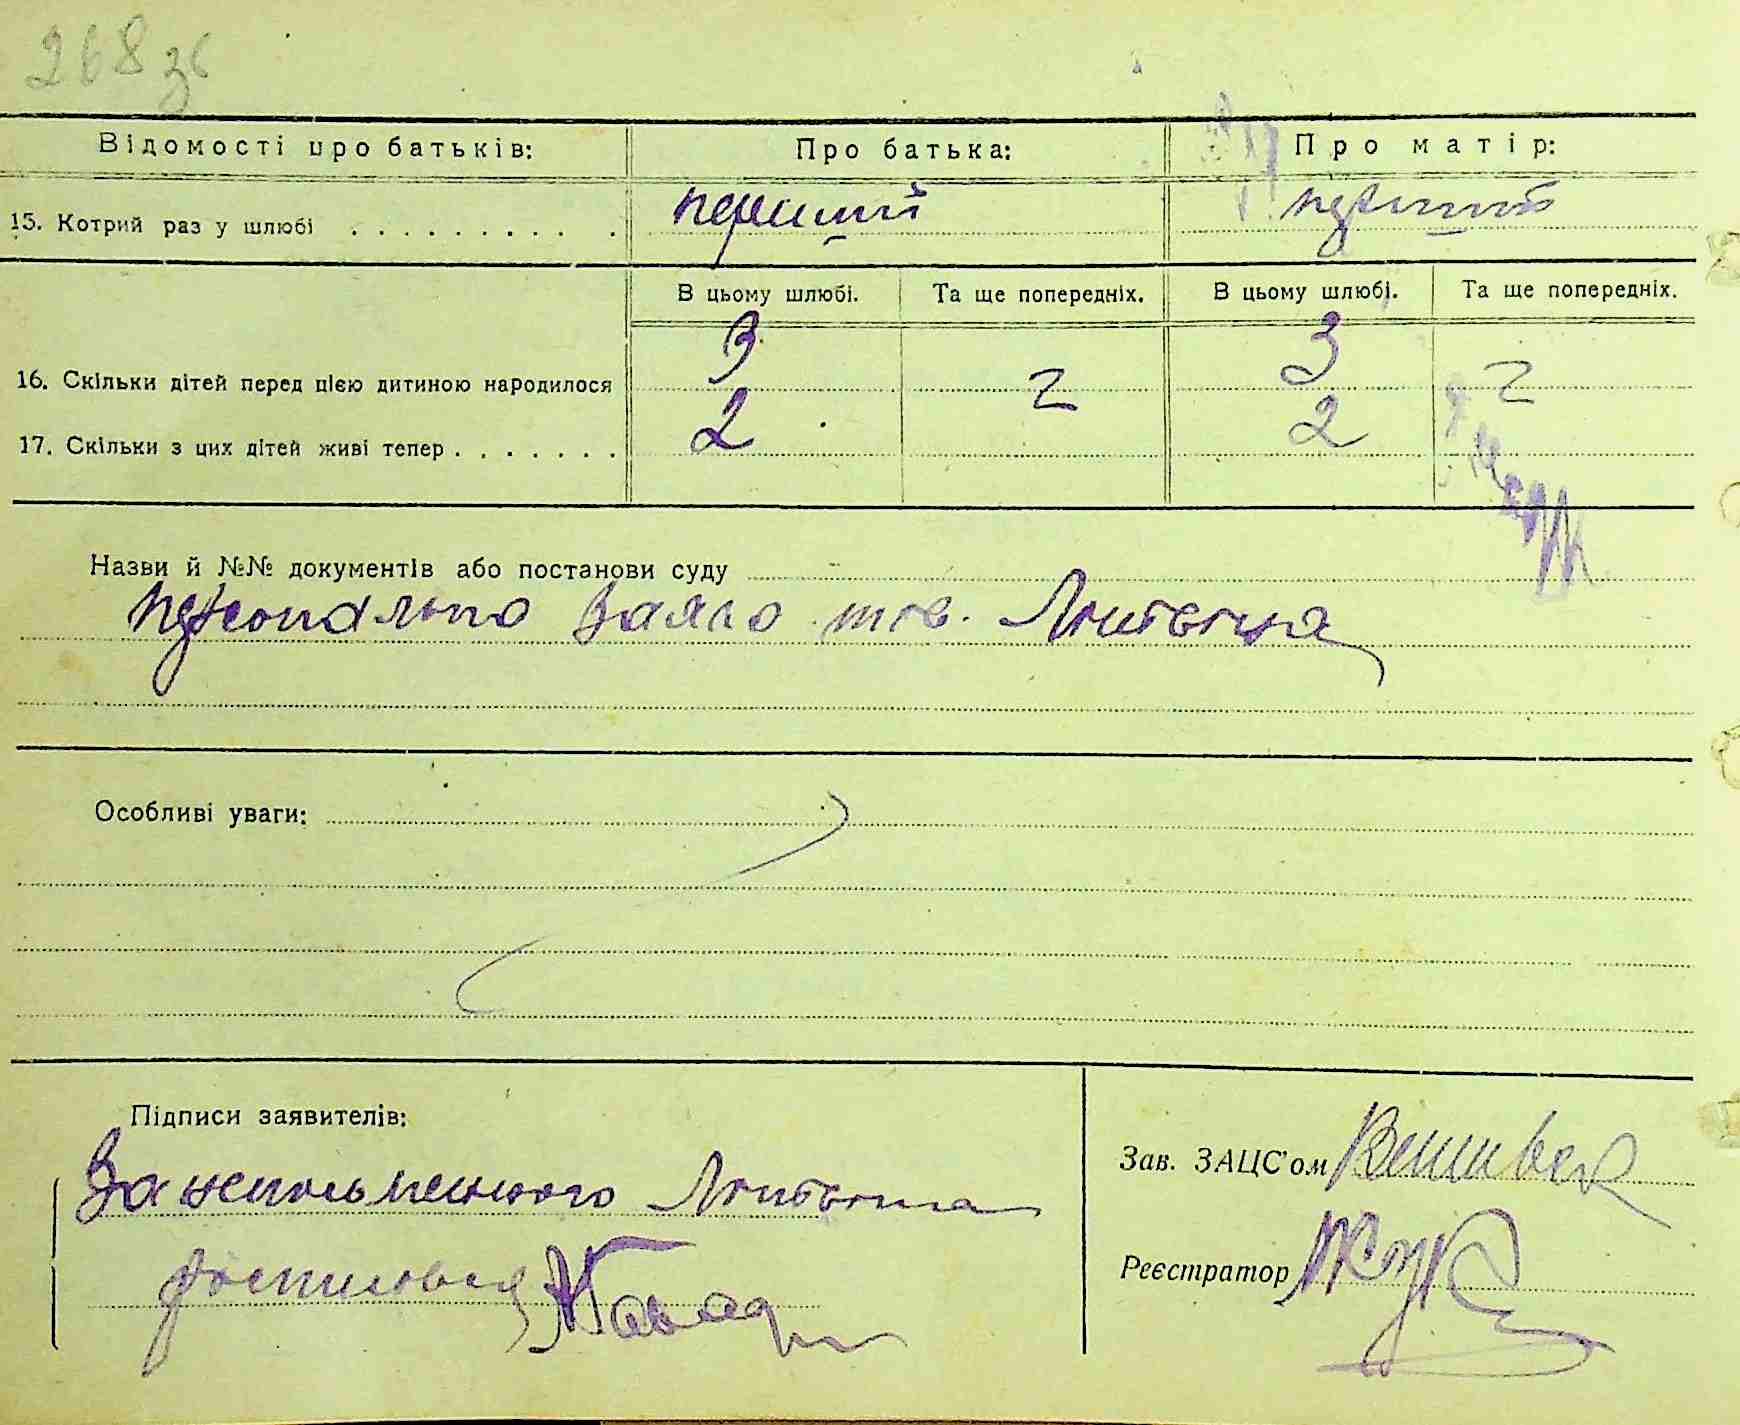 268 зв
Відомості про батьків: Про батька: Про матір:
15. Котрий раз у шлюбі . . . . . . . . . . перший перший
В цьому шлюбі. Та ще попередніх. В цьому шлюбі. Та ще попередніх.
16. Скільки дітей перед цією дитиною народилося 3 3
17. Скільки з цих дітей живі тепер . . . . . . . 2 2
Назви й №№ документів або постанови суду
персонально заява тов.
Особливі уваги:
Підписи заявителів:
За неписьменного
росписовся
Зав. ЗАЦС'ом
Реєстратор